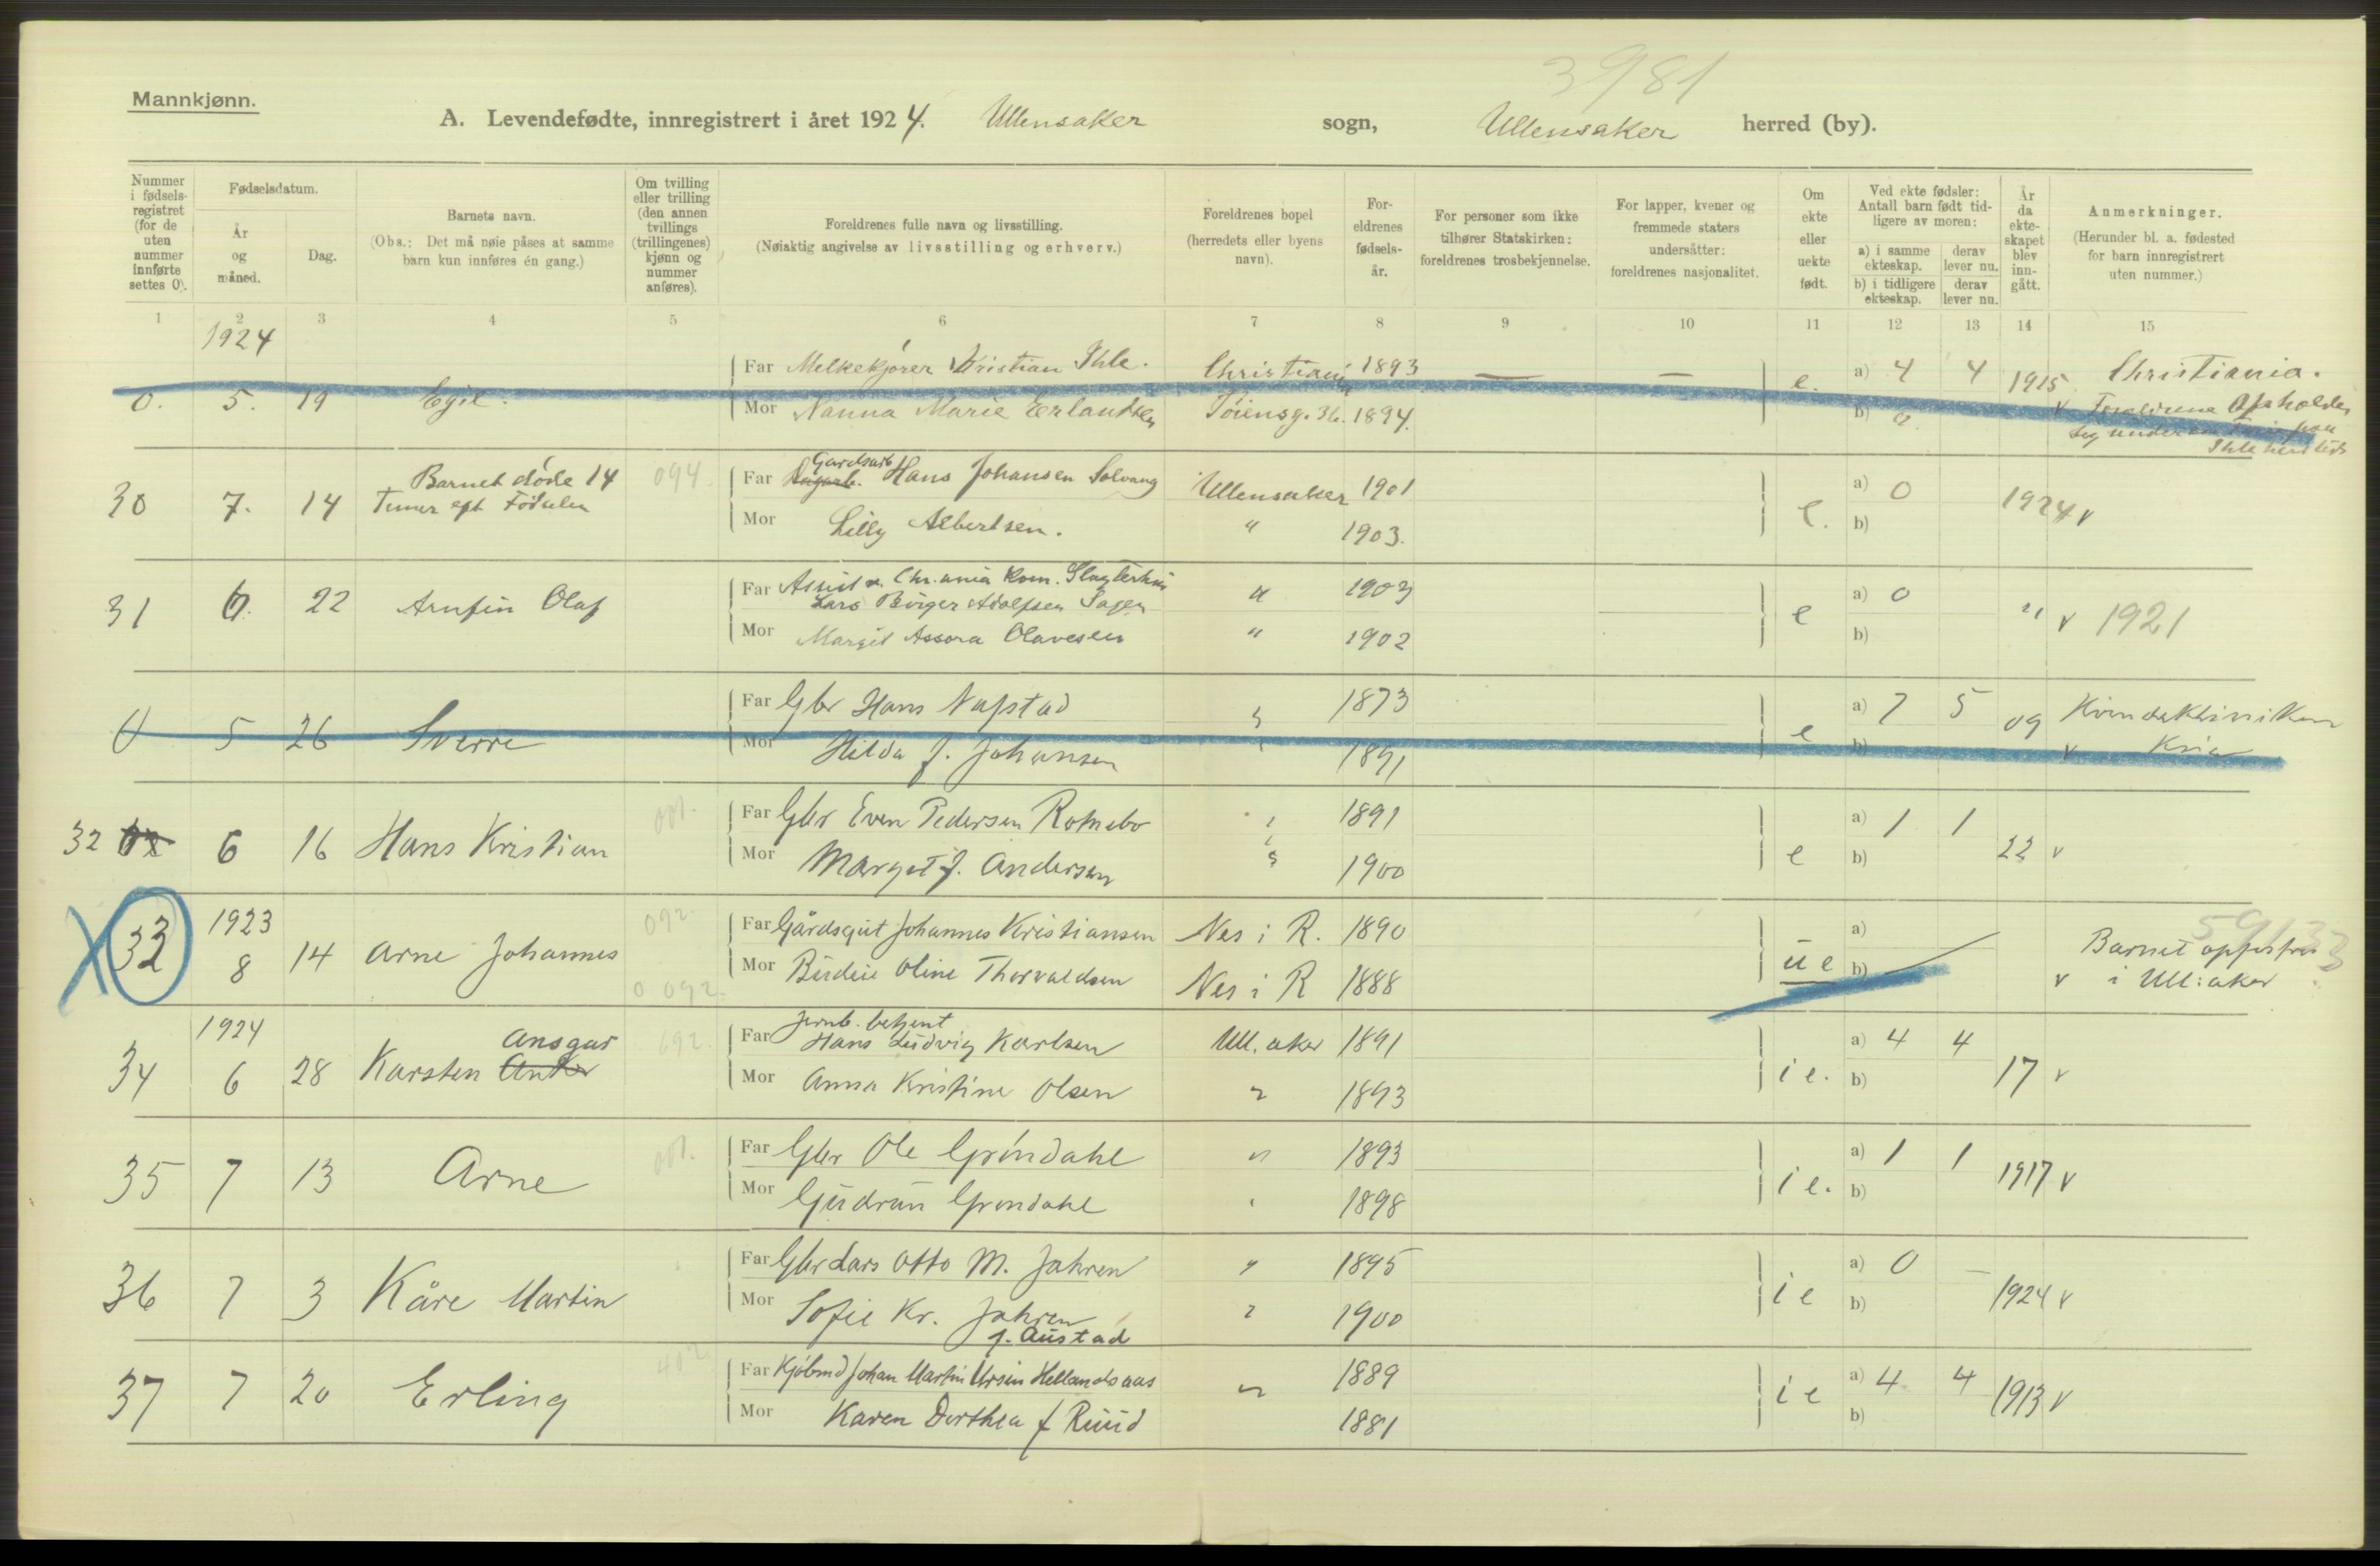 3981
Mannkjønn.
A. Levendefødte, innregistrert i året 1924. Ullensaker sogn, Ullensaker herred (by).
Nummer i fødsels-registret (for de uten nummer innførte settes 0).
Fødselsdatum.
År og måned.
Dag.
Barnets navn.
(Obs.: Det må nøie påses at samme barn kun innføres én gang.)
Om tvilling eller trilling (den annen tvillings (trillingenes) kjønn og nummer anføres).
Foreldrenes fulle navn og livsstilling.
(Nøiaktig angivelse av livsstilling og erhverv.)
Foreldrenes bopel (herredets eller byens navn).
For-eldrenes fødsels-år.
For personer som ikke tilhører Statskirken: foreldrenes trosbekjennelse.
For lapper, kvener og fremmede staters undersåtter: foreldrenes nasjonalitet.
Om ekte eller uekte født.
Ved ekte fødsler: Antall barn født tid-ligere av moren:
a) i samme ekteskap. derav lever nu.
b) i tidligere ekteskap. derav lever nu.
År da ekte-skapet blev inn-gått.
Anmerkninger.
(Herunder bl. a. fødested for barn innregistrert uten nummer.)
1 2 3 4 5 6 7 8 9 10 11 12 13 14 15
1924
Far Melkekjører Kristian Ihle. Christiania 1893 — — a) 4 4 1915 Christiania.
0. 5. 19 Egil. Mor Nanna Marie Erlandsen Tøiensg. 36. 1894. e. b) 0 v Foreldrene Opholder
sig under
Barnet døde 14 094. Far Gardsarb. Hans Johansen Solvang Ullensaker 1901 a) 0 1924 v
30 7. 14 Timer eft Fødselen Mor Lilly Albertsen. " 1903. e. b)
Far Chr.ania Kom. Slagterhus " 1903 a) 0
31 6. 22 Arnfin Olaf Lars Birger Adolfsen Sagen e " v 1921
Mor Margit Assora Olavesen " 1902 b)
Far Gbr Hans Nafstad " 1873 a) 7 5 09 Kvindeklinikken
0 5 26 Sverre Mor Hilda f. Johansen " 1891 e b) v Kria
001. Far Gbr Even Pedersen Romsbo " 1891 a) 1 1
32 6 16 Hans Kristian Mor Margit f. Andersen " 1900 e b) 22 v
1923 092. Far Gårdsgut Johannes Kristiansen Nes i R. 1890 a) Barnet opfostres
33 8 14 Arne Johannes 0 092. Mor Birdie Oline Thorvaldsen Nes i R 1888 ue b) v i Ull:aker
1924 Ansgar 692. Far Jernb. betjent Hans Ludvig Karlsen Ull.aker 1891 a) 4 4
34 6 28 Karsten Anker Mor Anna Kristine Olsen " 1893 ie. b) 17 v
001. Far Gbr Ole Grøndahl " 1893 a) 1 1
35 7 13 Arne Mor Gudrun Grøndahl " 1898 ie. b) 1917 v
Far Gbr Lars Otto M. Jahren " 1895 a) 0 —
36 7 3 Kåre Martin Mor Sofie Kr. Jahren " 1900 ie b) 1924 v
f. Austad
402 Far Kjøbmd Johan Martin Ursin Hellandsaas " 1889 a) 4 4
37 7 20 Erling Mor Karen Dorthea f Ruud 1881 ie b) 1913 v